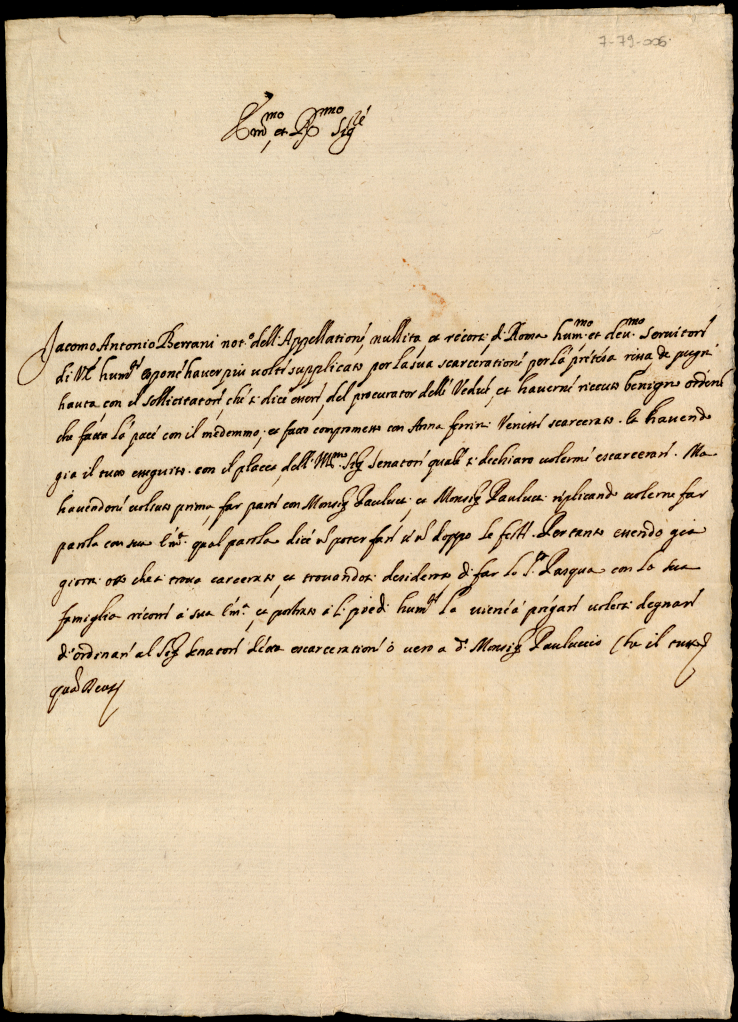 7-79-006
Em.mo et R.mo Sig.re
Jacomo Antonio Berrani not.o dell'Appellationi, nullita et ricorsi di Roma hum.mo et dev.mo servitore
di V.E. hum.te espone haver più volte supplicato per la sua scarceratione per la pretesa rissa de pugni
hauta con il sollicitatore, che si dice essere, del procurator delle Vedue, et haverne riceuto benigno ordine
che fatta la pace con il medemmo, et fatto compromesso con Anna ferrini Venisse scarcerato. Et havendo
gia il tutto esseguito con il placet dell'Ill.mo Sig.r Senatore quale si dechiarò volerme escarcerare. Ma
havendone voluto prima far parte con Monsig.r Paulucci, et Monsig.r Paulucci riplicando volerne far
parola con sua Em.a qual parola dice n poter fare se n doppo le feste. Pertanto essendo gia
giorni otto che si trova carcerato, et trovandosi desideroso di far la S.ta Pasqua con la sua
famiglia ricorre a sua Em.a, et postrato a li piedi hum.te la viene a pregare volersi degnare
d'ordinare al Sig.r Senatore detta escarceratione ò vero a d.o Monsig.r Pauluccio Che il tutto
quam Deus